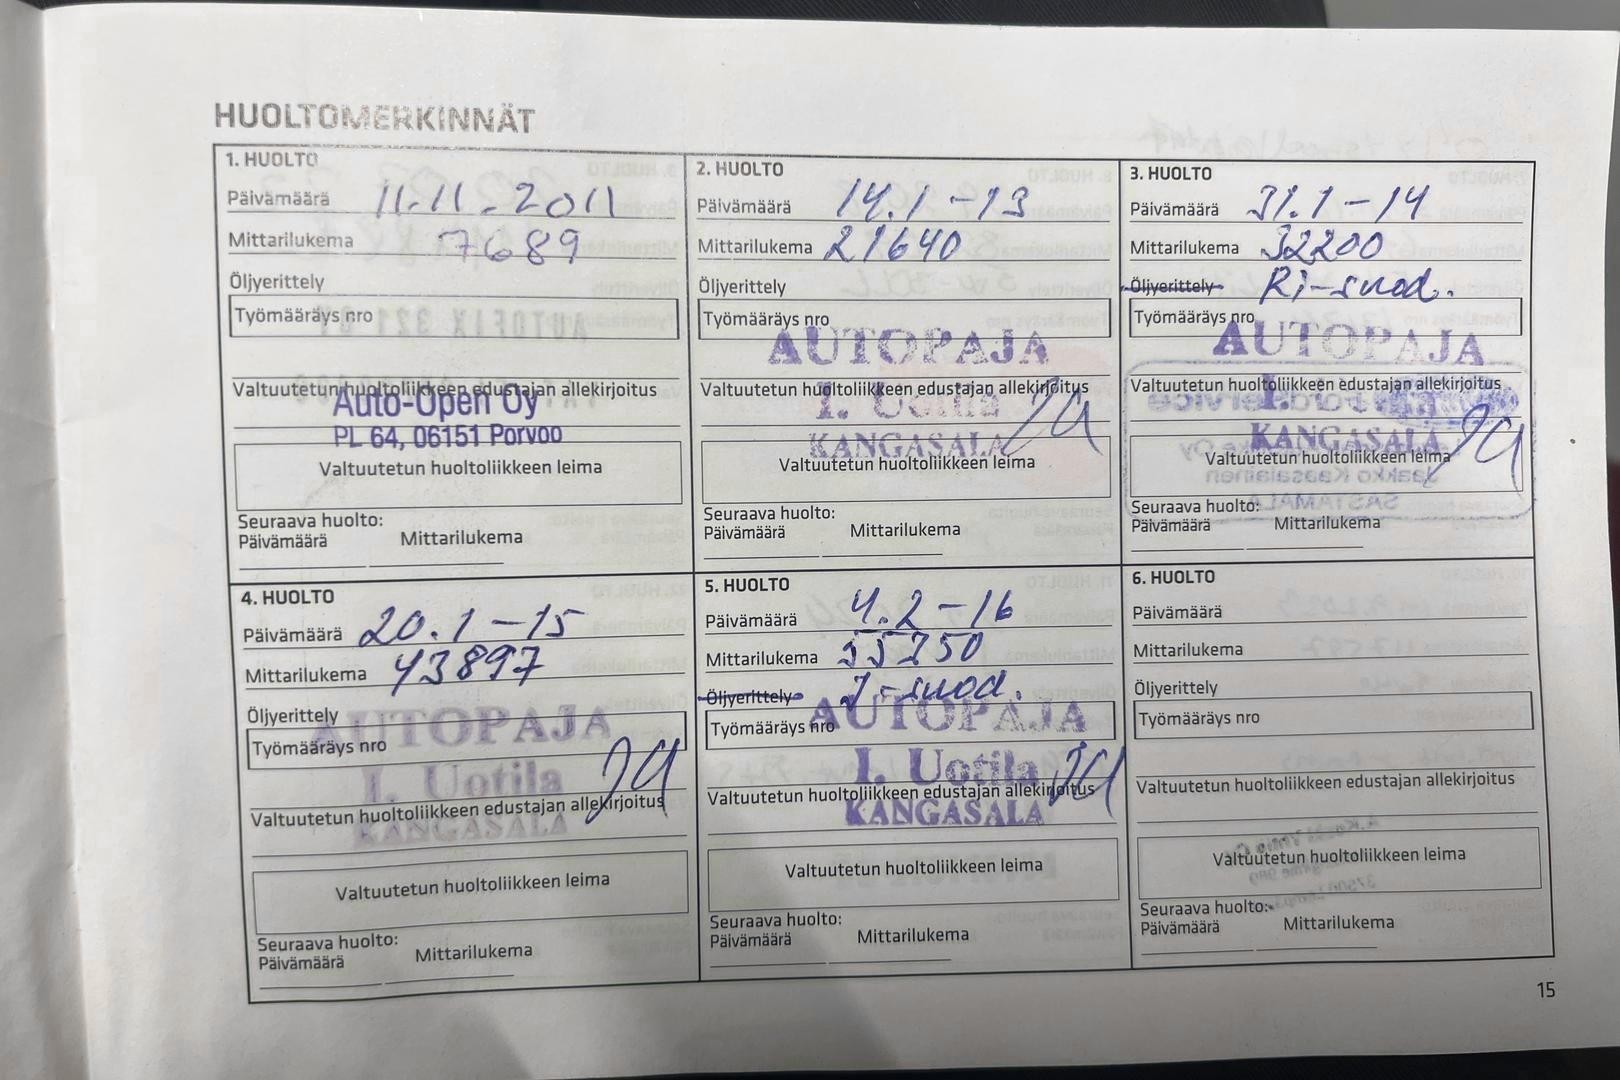 HUOLTOMERKINNÄT
1. HUOLTO
Päivämäärä 11.11.2011
Mittarilukema 7689
Öljyerittely
Työmääräys nro
Valtuutetun huoltoliikkeen edustajan allekirjoitus
Auto-Open Oy
PL 64, 06151 Porvoo
Valtuutetun huoltoliikkeen leima
Seuraava huolto:
Päivämäärä Mittarilukema
2. HUOLTO
Päivämäärä 14.1-13
Mittarilukema 21640
Öljyerittely
Työmääräys nro
AUTOPAJA
Valtuutetun huoltoliikkeen edustajan allekirjoitus
I. Uotila
KANGASALA
Valtuutetun huoltoliikkeen leima
Seuraava huolto:
Päivämäärä Mittarilukema
3. HUOLTO
Päivämäärä 31.1-14
Mittarilukema 32200
Öljyerittely Ri-suod.
Työmääräys nro
AUTOPAJA
Valtuutetun huoltoliikkeen edustajan allekirjoitus
I.
KANGASALA
Valtuutetun huoltoliikkeen leima
Seuraava huolto:
Päivämäärä Mittarilukema
4. HUOLTO
Päivämäärä 20.1-15
Mittarilukema 43897
Öljyerittely
AUTOPAJA
Työmääräys nro
I. Uotila
Valtuutetun huoltoliikkeen edustajan allekirjoitus
KANGASALA
Valtuutetun huoltoliikkeen leima
Seuraava huolto:
Päivämäärä Mittarilukema
5. HUOLTO
Päivämäärä 4.2-16
Mittarilukema
Öljyerittely
AUTOPAJA
Työmääräys nro
I. Uotila
Valtuutetun huoltoliikkeen edustajan allekirjoitus
KANGASALA
Valtuutetun huoltoliikkeen leima
Seuraava huolto:
Päivämäärä Mittarilukema
6. HUOLTO
Päivämäärä
Mittarilukema
Öljyerittely
Työmääräys nro
Valtuutetun huoltoliikkeen edustajan allekirjoitus
Valtuutetun huoltoliikkeen leima
Seuraava huolto:
Päivämäärä Mittarilukema
15